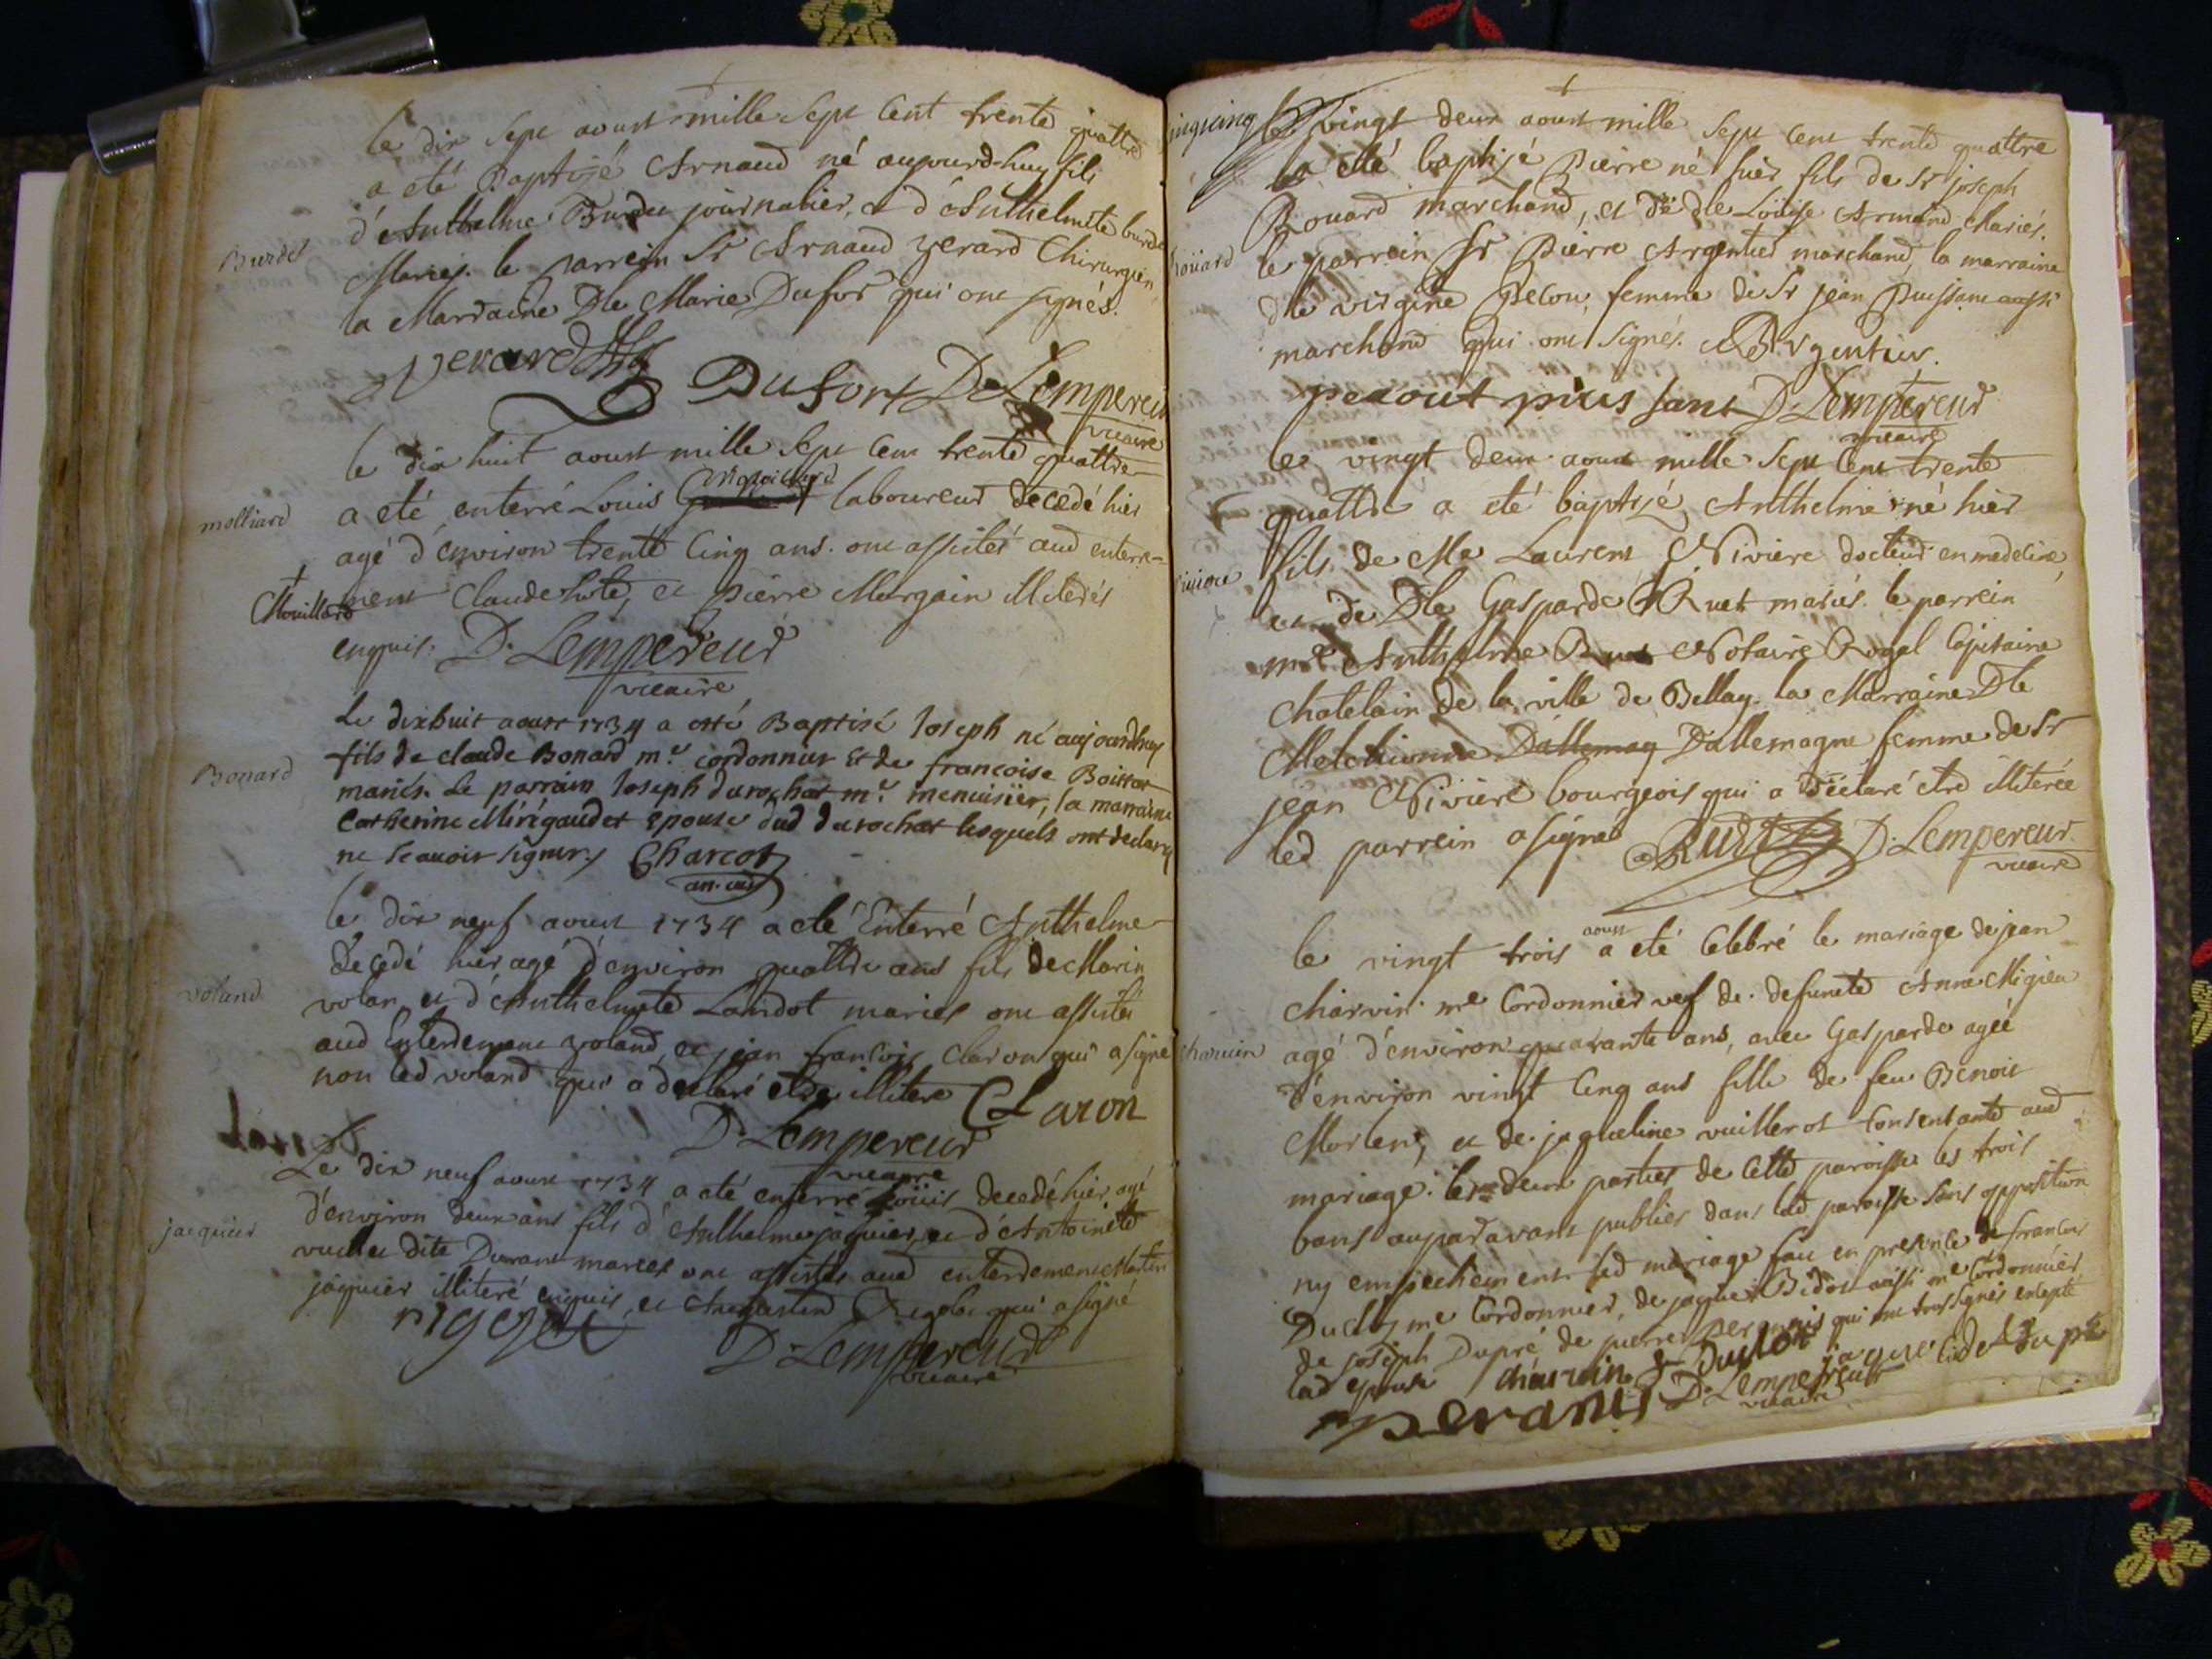 le dix sept aoust mille sept cent trente quattre
a eté Baptisé Arnaud né aujourd-huy fils
d'Anthelme Burdet journalier, et d'Anthelmete burdet
Burdet
Mariés. le parrein Sr Arnaud verard Chirurgien
la Marraine Dle Marie Dufor qui ont signés.
verard
Dufort D. Lempereur
vicaire
le dix huit aoust mille sept cent trente quattre
a eté enterré Louis laboureur decedé hier
molliard
agé d'environ trente cinq ans. ont assistés aud enterre-
ment Claude hote, et pierre Morgain illiterés
Mouillard
enquis. D. Lempereur
vicaire
Le dixhuit aoust 1734 a esté Baptisé Joseph né aujourdhuy
fils de claude Bonard mre cordonnier Et de francoise Boissat
Bonard
mariés. Le parrain Joseph durochat mre menuisier, la marraine
Catherine Mirégaudet Epouse dud durochat lesquels ont declaré
ne scauoir signer. Charcot
le dix neuf aoust 1734 a eté Enterré Anthelme
decedé hier agé d'environ quattre ans fils de Marin
voland
volan et d'Anthelmete Landot mariés ont assistés
aud Enterrement voland, et jean francois Claron qui a signé
non led voland qui a declaré etre illiteré Claron
D. Lempereur
vicaire
Le dix neuf aoust 1734 a eté enterré Loüis decedé hier agé
d'environ deux ans fils d'Anthelme jaquier, et d'Antoinete
jacquier
dite Durant mariés ont assistés aud enterrement Martin
jaquier illiteré enquis, et Augustin qui a signé
D. Lempereur
vicaire
le vingt deux aoust mille sept cent trente quattre
a eté baptisé Pierre né hier fils de Sr joseph
Rouard marchand, et de dle Loüise Armand Mariés.
le parrein Sr Pierre Argentier marchand, la marraine
dle virgine Pecou, femme de Sr jean Puissant aussi
marchand qui ont signés. Argentier.
pecout puis sant D. Lempereur
vicaire
le vingt deux aoust mille sept cent trente
quattre a eté baptisé Anthelme né hier
fils de Me Laurent Niviere docteur en medecine,
et de Dle Gasparde Rubat mariés. le parrein
me Anthelme Notaire Royal Capitaine
Chatelain de la ville de Bellay. la Marraine Dle
Melchionne Dallemag Dallemagne femme de Sr
jean Niviere bourgeois qui a déclaré etre illiterée
led parrein a signé D. Lempereur.
vicaire
le vingt trois aoust a eté Celebré le mariage de jean
Charvin me Cordonnier vef de defuncte Anne Migieu
charuin
agé d'environ quarante ans, avec Gasparde agée
d'environ vingt cinq ans fille de feu Benoit
Morlen, et de jaqueline vuillerot Consentante aud
mariage. les deux parties de cette paroisse les trois
bans auparavant publiés dans lad paroisse sans opposition
ny empechement led mariage fait en presence de francois
Duclos me Cordonnier, de jaque Bidot aussi me Cordonnier
de joseph Dupré de pierre qui ont tous signés excepté
lad epouse charuin Duclot
D. Lempereur
vicaire